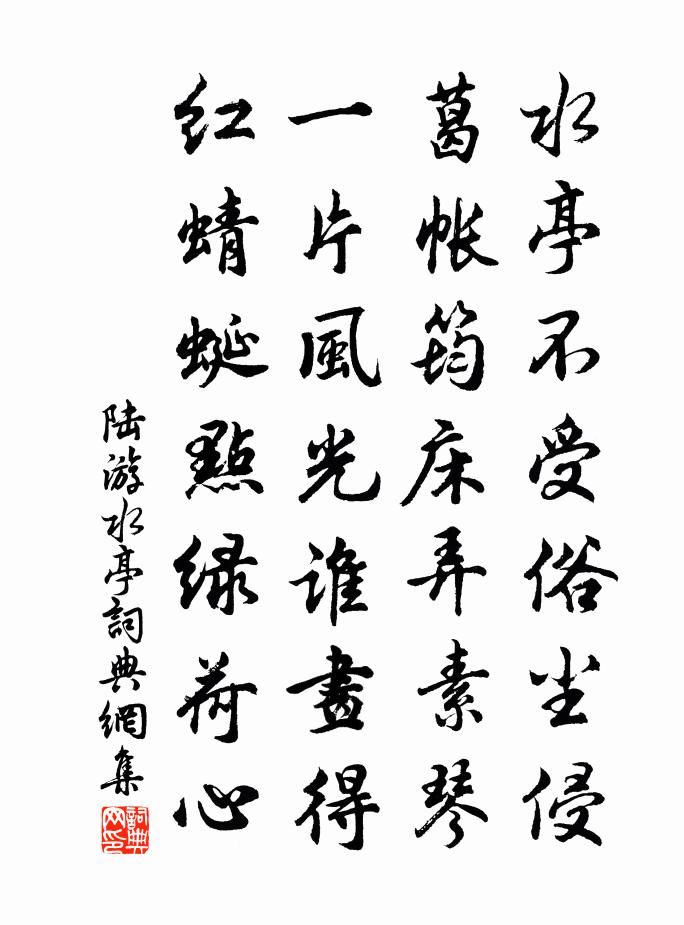 水亭不受俗尘侵
葛帐筠床弄素琴
一片風光谁畫得
红蜻蜓點绿荷心
陆游水亭詞典網集
詞典网印